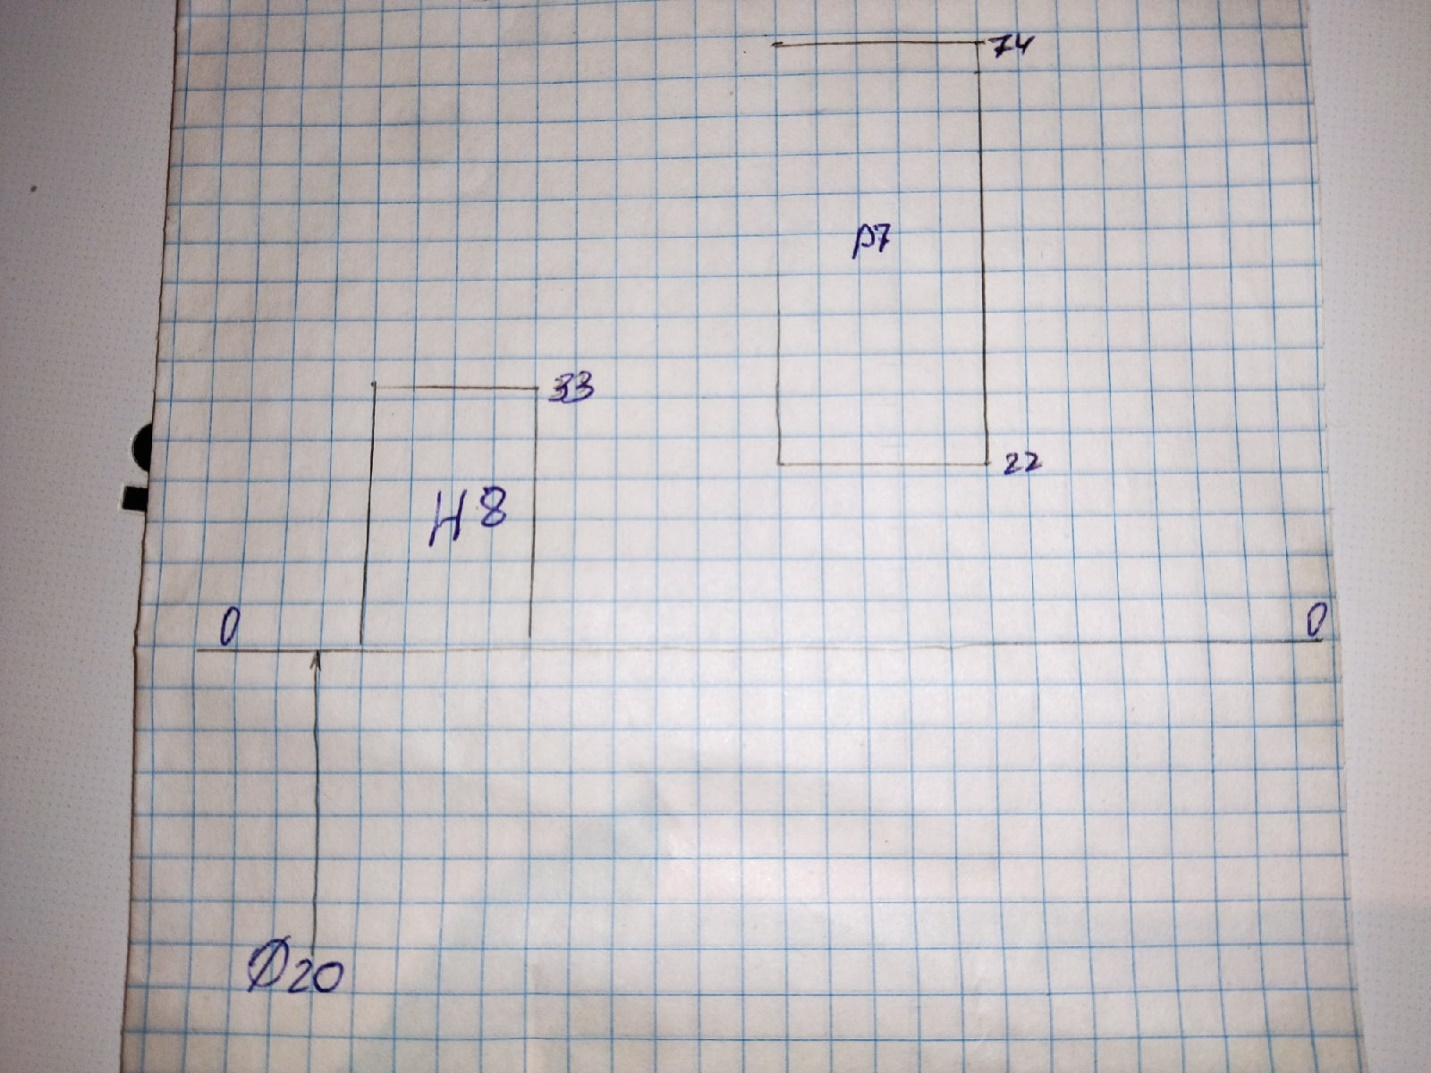 74
p7
33
22
H8
0
0
Ø20